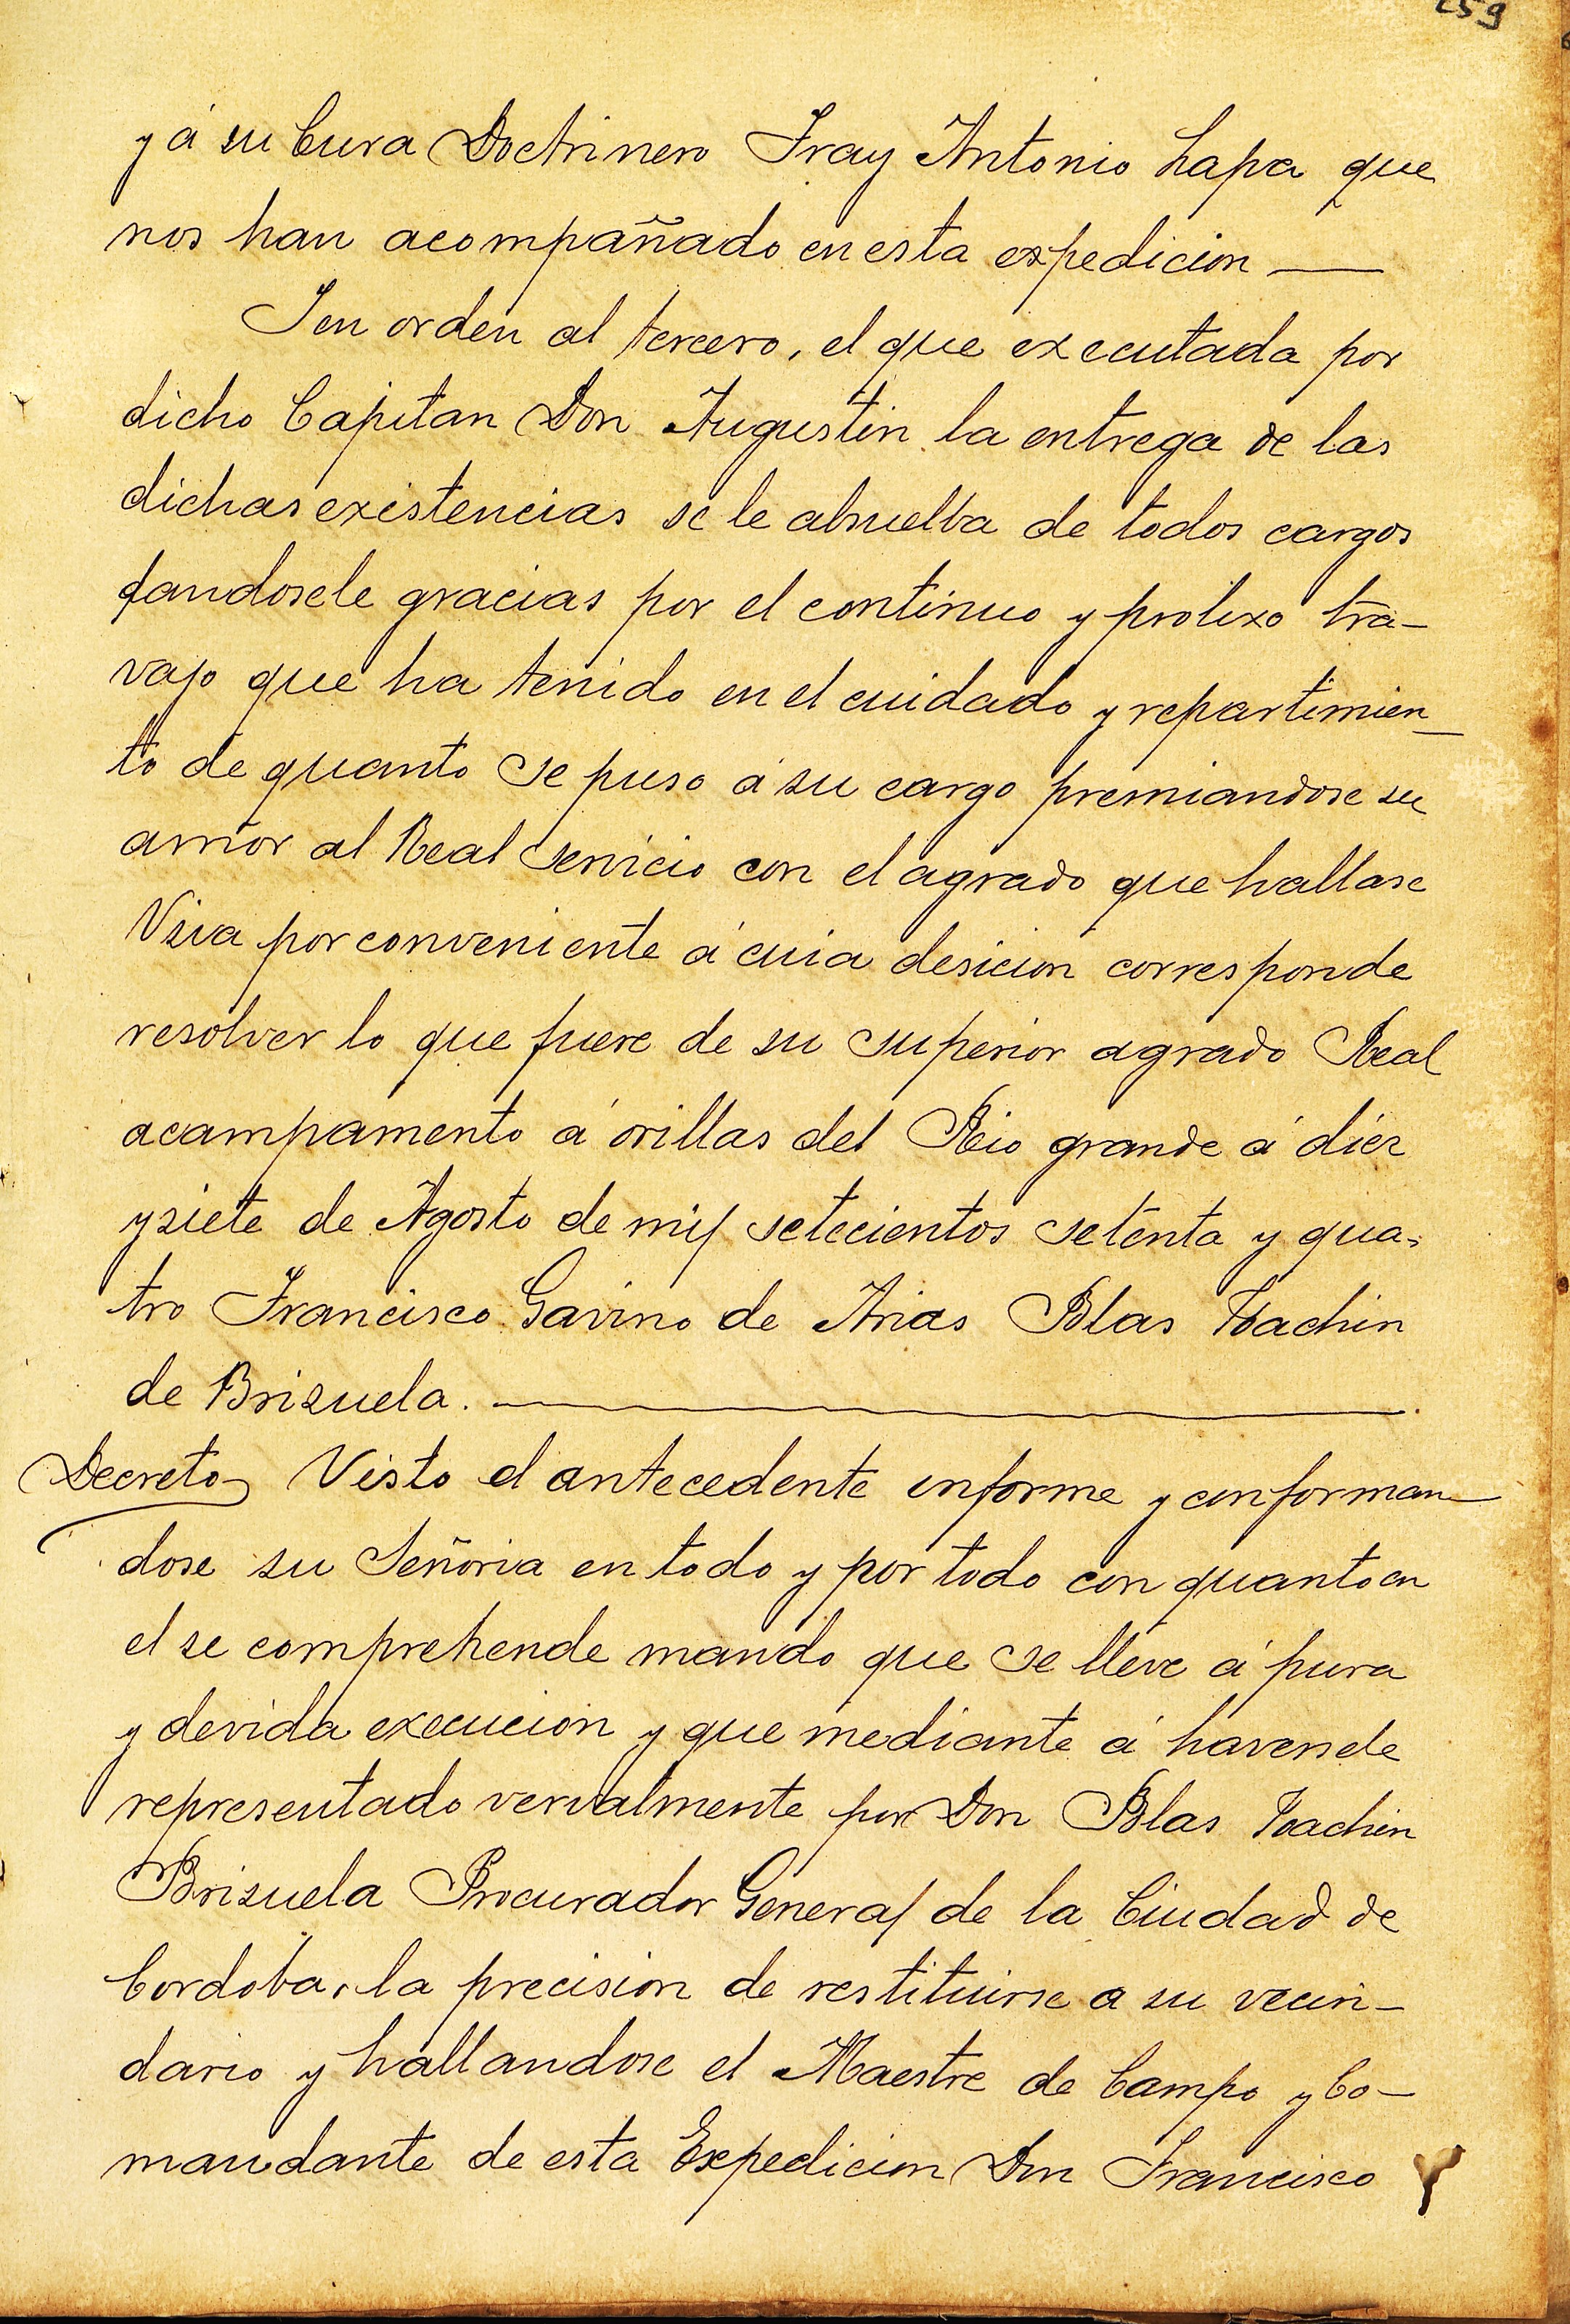 259
y á su Cura Doctrinero Fray Antonio Lapa que
nos han acompañado en esta expedicion —
I en orden al tercero, el que executada por
dicho Capitan Don Augustin la entrega de las
dichas existencias se le absuelba de todos cargos
dandosele gracias por el continuo y prolixo tra-
vajo que ha tenido en el cuidado y repartimien-
to de quanto se puso á su cargo premiandose su
amor al Real servicio con el agrado que hallase
Vsia por conveniente á cuia desicion corresponde
resolver lo que fuere de su superior agrado Real
acampamento á orillas del Rio grande á diez
y siete de Agosto de mil setecientos setenta y qua-
tro Francisco Gavino de Arias Blas Joachin
de Brizuela. —
Decreto Visto el antecedente informe y conforman-
dose su Señoria en todo y por todo con quanto en
el se comprehende mando que se lleve á pura
y devida execucion y que mediante á haversele
representado vervalmente por Don Blas Joachin
Brizuela Procurador General de la Ciudad de
Cordoba, la precision de restituirse a su vecin-
dario y hallandose el Maestre de Campo y Co-
mandante de esta Expedicion Don Francisco